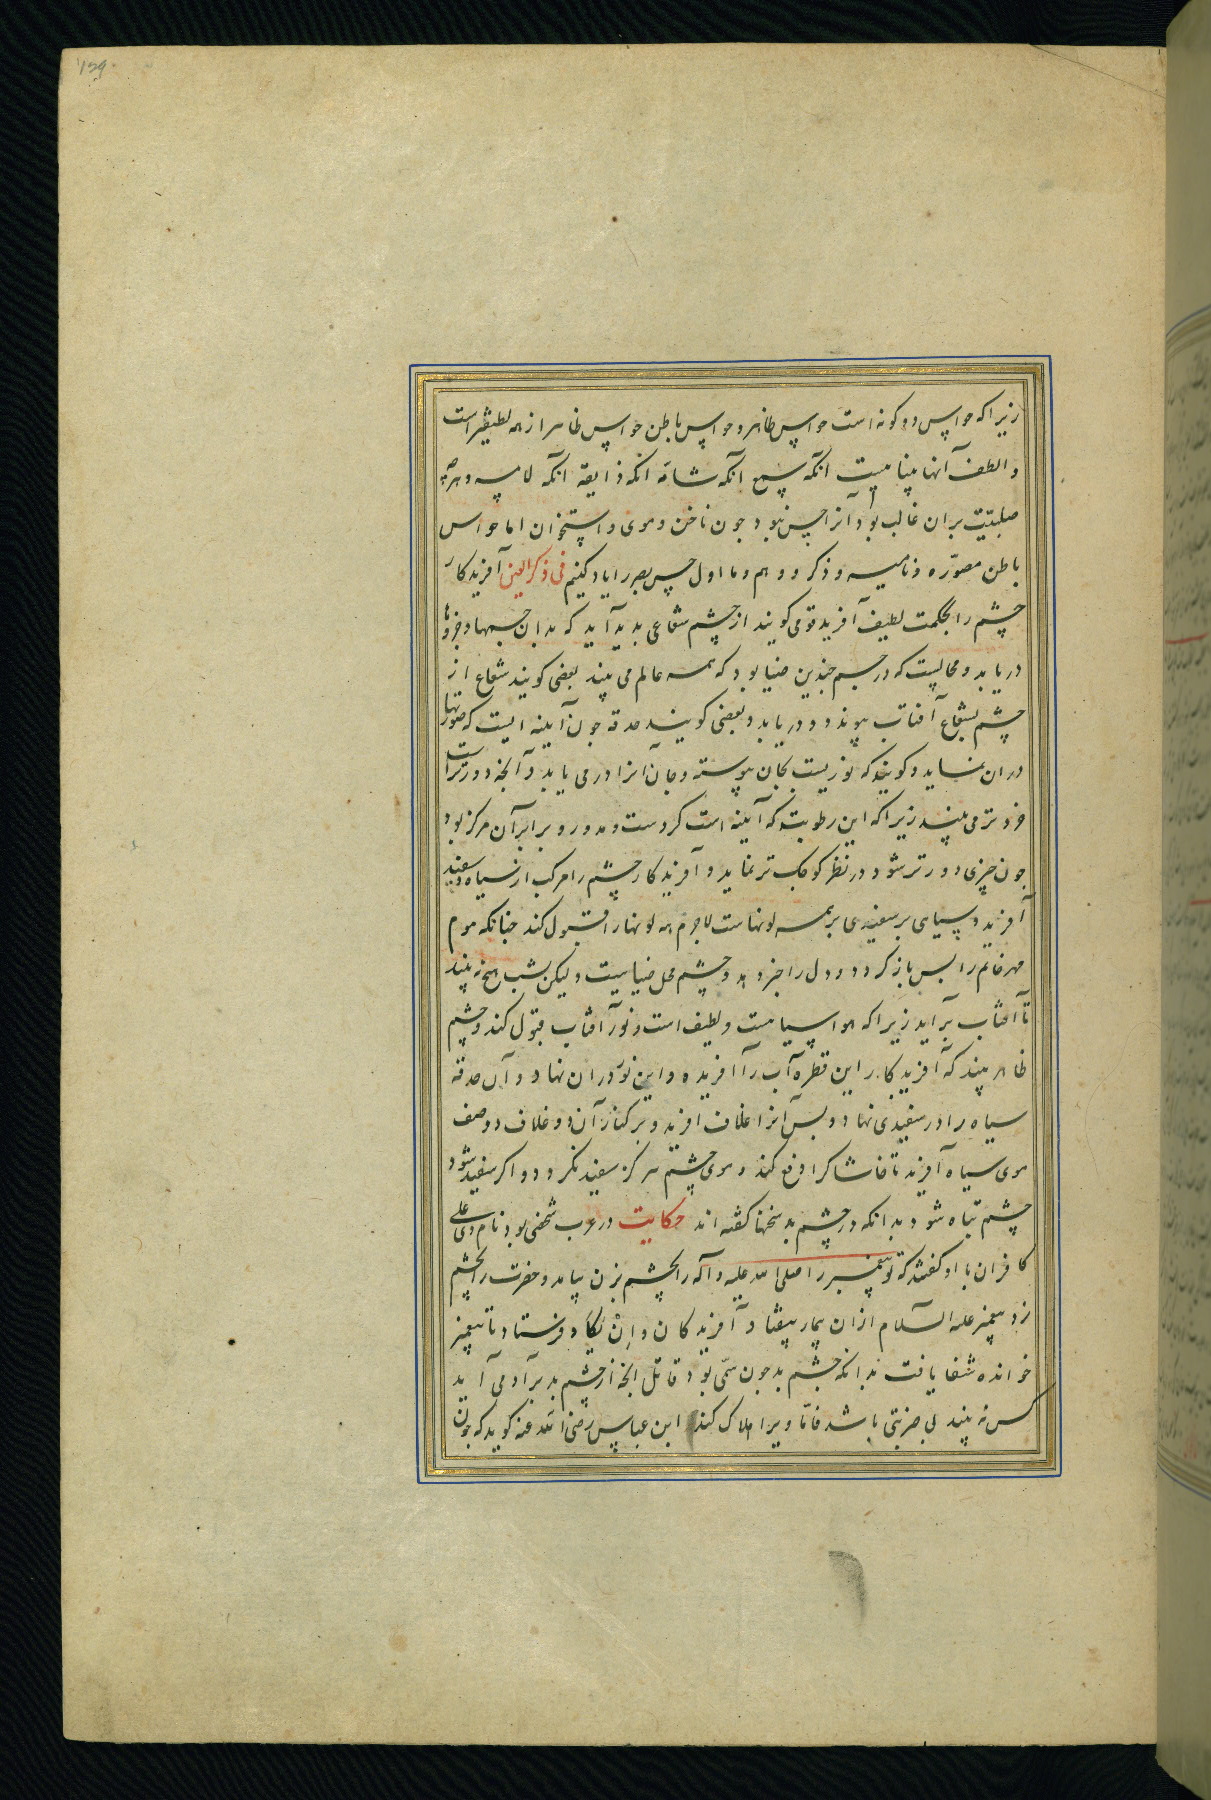 ۱۲۹
زیرا که حواس دو کونه است حواس ظاهر و حواس باطن حواس ظاهر از همه لطیفتر است
و الطف آنها بیناییست آنکه سمع آنکه شامه آنکه ذایقه آنکه لامسه و هرچه
صلبیّت بران غالب بود آنرا حس نبود جون ناخن و موی و استخوان اما حواس
باطن مصوّره و نامیه و ذکر و وهم و ما اول حس بصر را یاد کنیم فی ذکر العین آفریدکار
چشم را بحکمت لطیف آفرید قومی کویند از چشم شعاعی بدید آید که بدان جسمها و
دریابد و محالیست که در جسم جندین ضیا بود که همه عالم می بیند بعضی کویند شعاع از
چشم بشعاع آفتاب پیوندد و دریابد و بعضی کویند حدقه جون آیینه ایست که صورتها
دران نماید و کویند که نوریست بجان پیوسته و جان آنرا در می یابد و آنجه دورتر است
خردتر می بیند زیرا که این رطوبت که آیینه است کردست و مدور و برابر آن مرکز بود
جون چیزی دورتر شود در نظر کوجک تر نماید و آفریدکار چشم را مرکب از سیاه و سفید
آفرید و سیاهی بر سفیدی بر همه لونهاست لاجرم همه لونها را قبول کند جنانکه موم
مهر خاتم را بس باز کردد و دل را خبر دهد و چشم محل ضیاییست ولیکن بشب هیچ نه بیند
تا آفتاب برآید زیرا که هوا سیاهست و لطیف است و نور آفتاب قبول کند و چشم
ظاهر بیند که آفریدکار این قطره آب را آفریده و این نور دران نهاد و آن حدقه
سیاه را در سفیدی نهاد و بس آنرا غلاف آفرید و بر کنار آن دو غلاف دو صف
موی سیاه آفرید تا خاشاک را دفع کند و موی چشم هرکز سفید نکردد و اکر سفید شود
چشم تباه شود بدانکه در چشم بد سخنها کفته اند حکایت در عرب شخصی بود نام وی علی
کافران با او کفتند که تو پیغمبر را صلی الله علیه و آله را بچشم بزن بیامد و حضرت را بچشم
زد پیغمبر علیه السلام ازان بیمار بیفتاد آفریدکان و اِنْ یَکاد فرستاد تا پیغمبر
خوانده شفا یافت بدانکه جشم بد جون سمّی بود قاتل انجه از چشم بد برآدمی آید
کس نه بیند بی ضربتی باشد فامّا ویرا هلاک کند ابن عباس رضی الله عنه کوید که جون